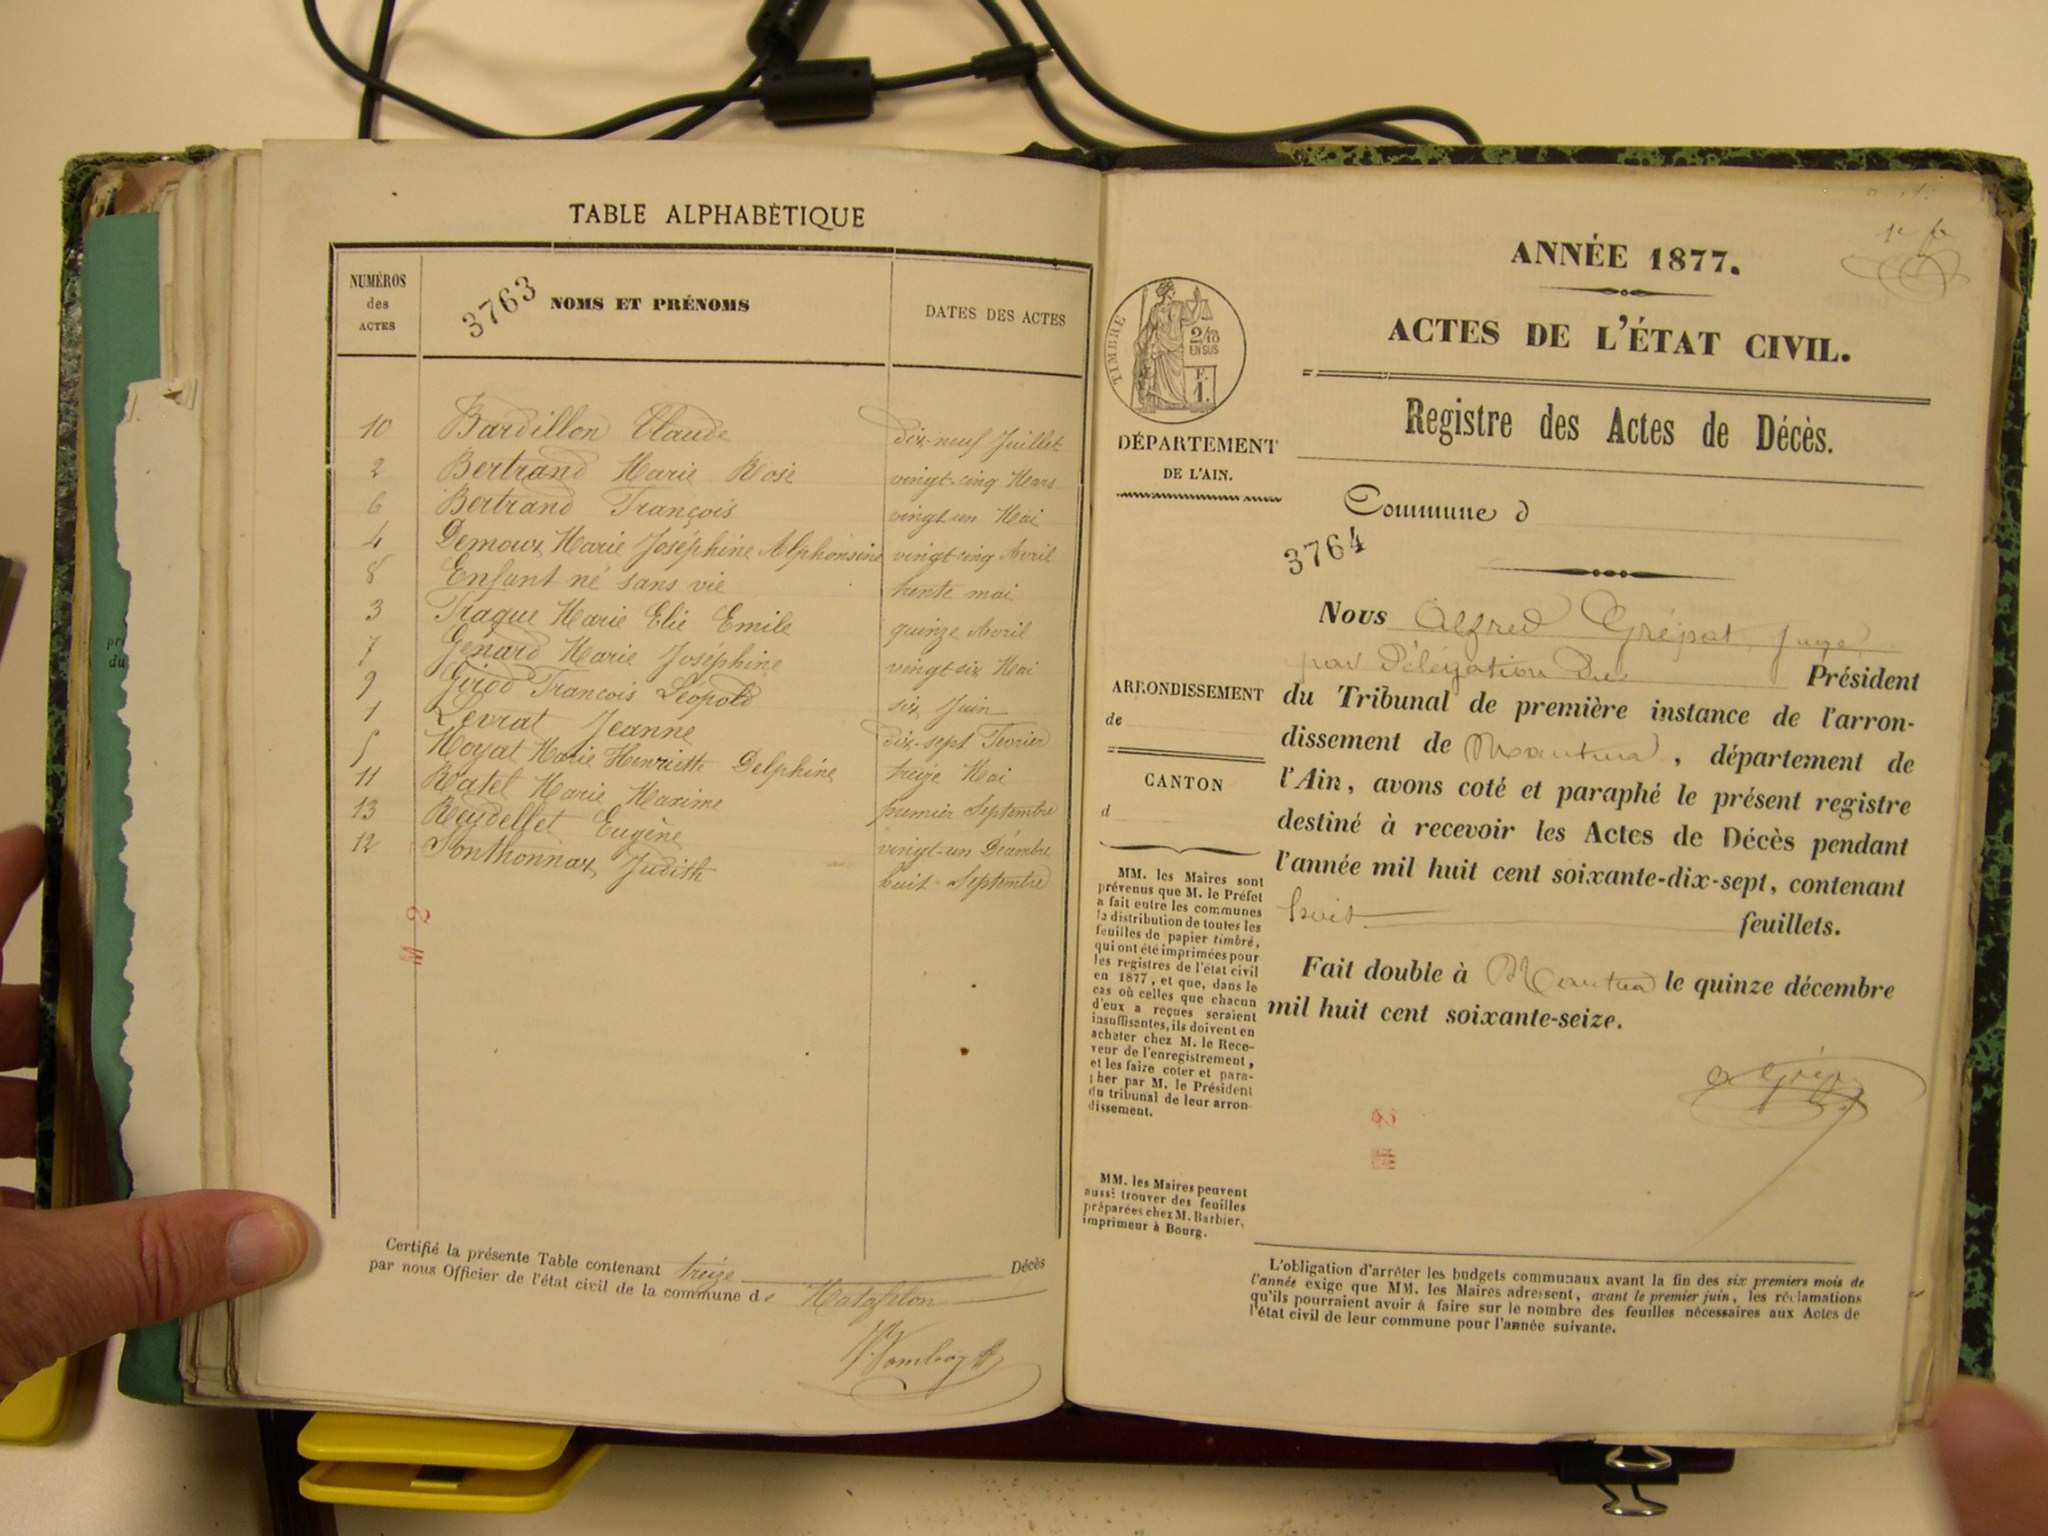 TABLE ALPHABÉTIQUE
NUMÉROS des ACTES
3763
NOMS ET PRÉNOMS
DATES DES ACTES
10 Bardillon Claude dix-neuf Juillet
2 Bertrand Marie Rose vingt-cinq Mars
6 Bertrand François vingt-un Mai
4 Demoux Marie Joséphine Alphonsine vingt-cinq Avril
8 Enfant né sans vie trente mai
3 Fraque Marie Elie Emile quinze Avril
7 Genard Marie Joséphine vingt-six Mai
9 Girod François Léopold six Juin
1 Levrat Jeanne dix-sept Fevrier
5 Moyat Marie Henriette Delphine treize Mai
11 Ratel Marie Maxime premier Septembre
13 Reydellet Eugène vingt-un Décembre
12 Sonthonnax Judith huit Septembre
M 2
Certifié la présente Table contenant treize Décès
par nous Officier de l'état civil de la commune de Matafelon
ANNÉE 1877.
ACTES DE L'ÉTAT CIVIL.
Registre des Actes de Décès.
TIMBRE
2/10
EN SUS
F.
1.
DÉPARTEMENT
DE L'AIN.
Commune d
3764
Nous Alfred Grépat, Juge
par Délégation du Président
du Tribunal de première instance de l'arron-
dissement de Nantua, département de
l'Ain, avons coté et paraphé le présent registre
destiné à recevoir les Actes de Décès pendant
l'année mil huit cent soixante-dix-sept, contenant
huit feuillets.
Fait double à Nantua le quinze décembre
mil huit cent soixante-seize.
ARRONDISSEMENT
de
CANTON
d
MM. les Maires sont
prévenus que M. le Préfet
a fait entre les communes
la distribution de toutes les
feuilles de papier timbré,
qui ont été imprimées pour
les registres de l'état civil
en 1877, et que, dans le
cas où celles que chacun
d'eux a reçues seraient
insuffisantes, ils doivent en
acheter chez M. le Rece-
veur de l'enregistrement,
et les faire coter et para-
pher par M. le Président
du tribunal de leur arron-
dissement.
MM. les Maires peuvent
aussi trouver des feuilles
préparées chez M. Barbier,
imprimeur à Bourg.
L'obligation d'arrêter les budgets communaux avant la fin des six premiers mois de
l'année exige que MM. les Maires adressent, avant le premier juin, les réclamations
qu'ils pourraient avoir à faire sur le nombre des feuilles nécessaires aux Actes de
l'état civil de leur commune pour l'année suivante.